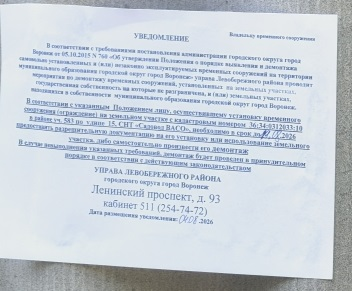 Владельцу временного сооружения
УВЕДОМЛЕНИЕ
В соответствии с требованиями постановления администрации городского округа город
Воронеж от 05.10.2015 N 760 «Об утверждении Положения о порядке выявления и демонтажа
самовольно установленных и (или) незаконно эксплуатируемых временных сооружений на территории
муниципального образования городской округ город Воронеж» управа Левобережного района проводит
мероприятия по демонтажу временных сооружений, установленных на земельных участках,
государственная собственность на которые не разграничена, и (или) земельных участках,
находящихся в собственности муниципального образования городской округ город Воронеж.
В соответствии с указанным Положением лицу, осуществившему установку временного
сооружения (ограждение) на земельном участке с кадастровым номером 36:34:0312033:10
в районе уч. 583 по улице 15, СНТ «Садовод ВАСО», необходимо в срок до 2026
предоставить разрешительную документацию на его установку или использование земельного
участка, либо самостоятельно произвести его демонтаж
В случае невыполнения указанных требований, демонтаж будет проведен в принудительном
порядке в соответствии с действующим законодательством
УПРАВА ЛЕВОБЕРЕЖНОГО РАЙОНА
городского округа город Воронеж
Ленинский проспект, д. 93
кабинет 511 (254-74-72)
Дата размещения уведомления: 2026